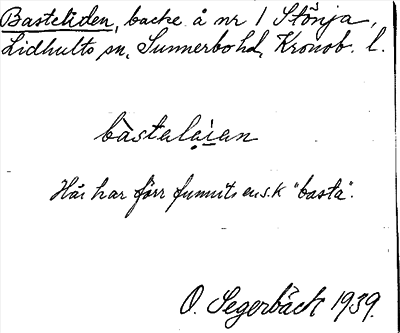 Basteliden, backe å nr 1 Stönja,
Lidhults sn, Sunnerbo hd, Kronob. l.
bàstalạian
Här har förr funnits en s.k "basta".
O. Segerbäck 1939.